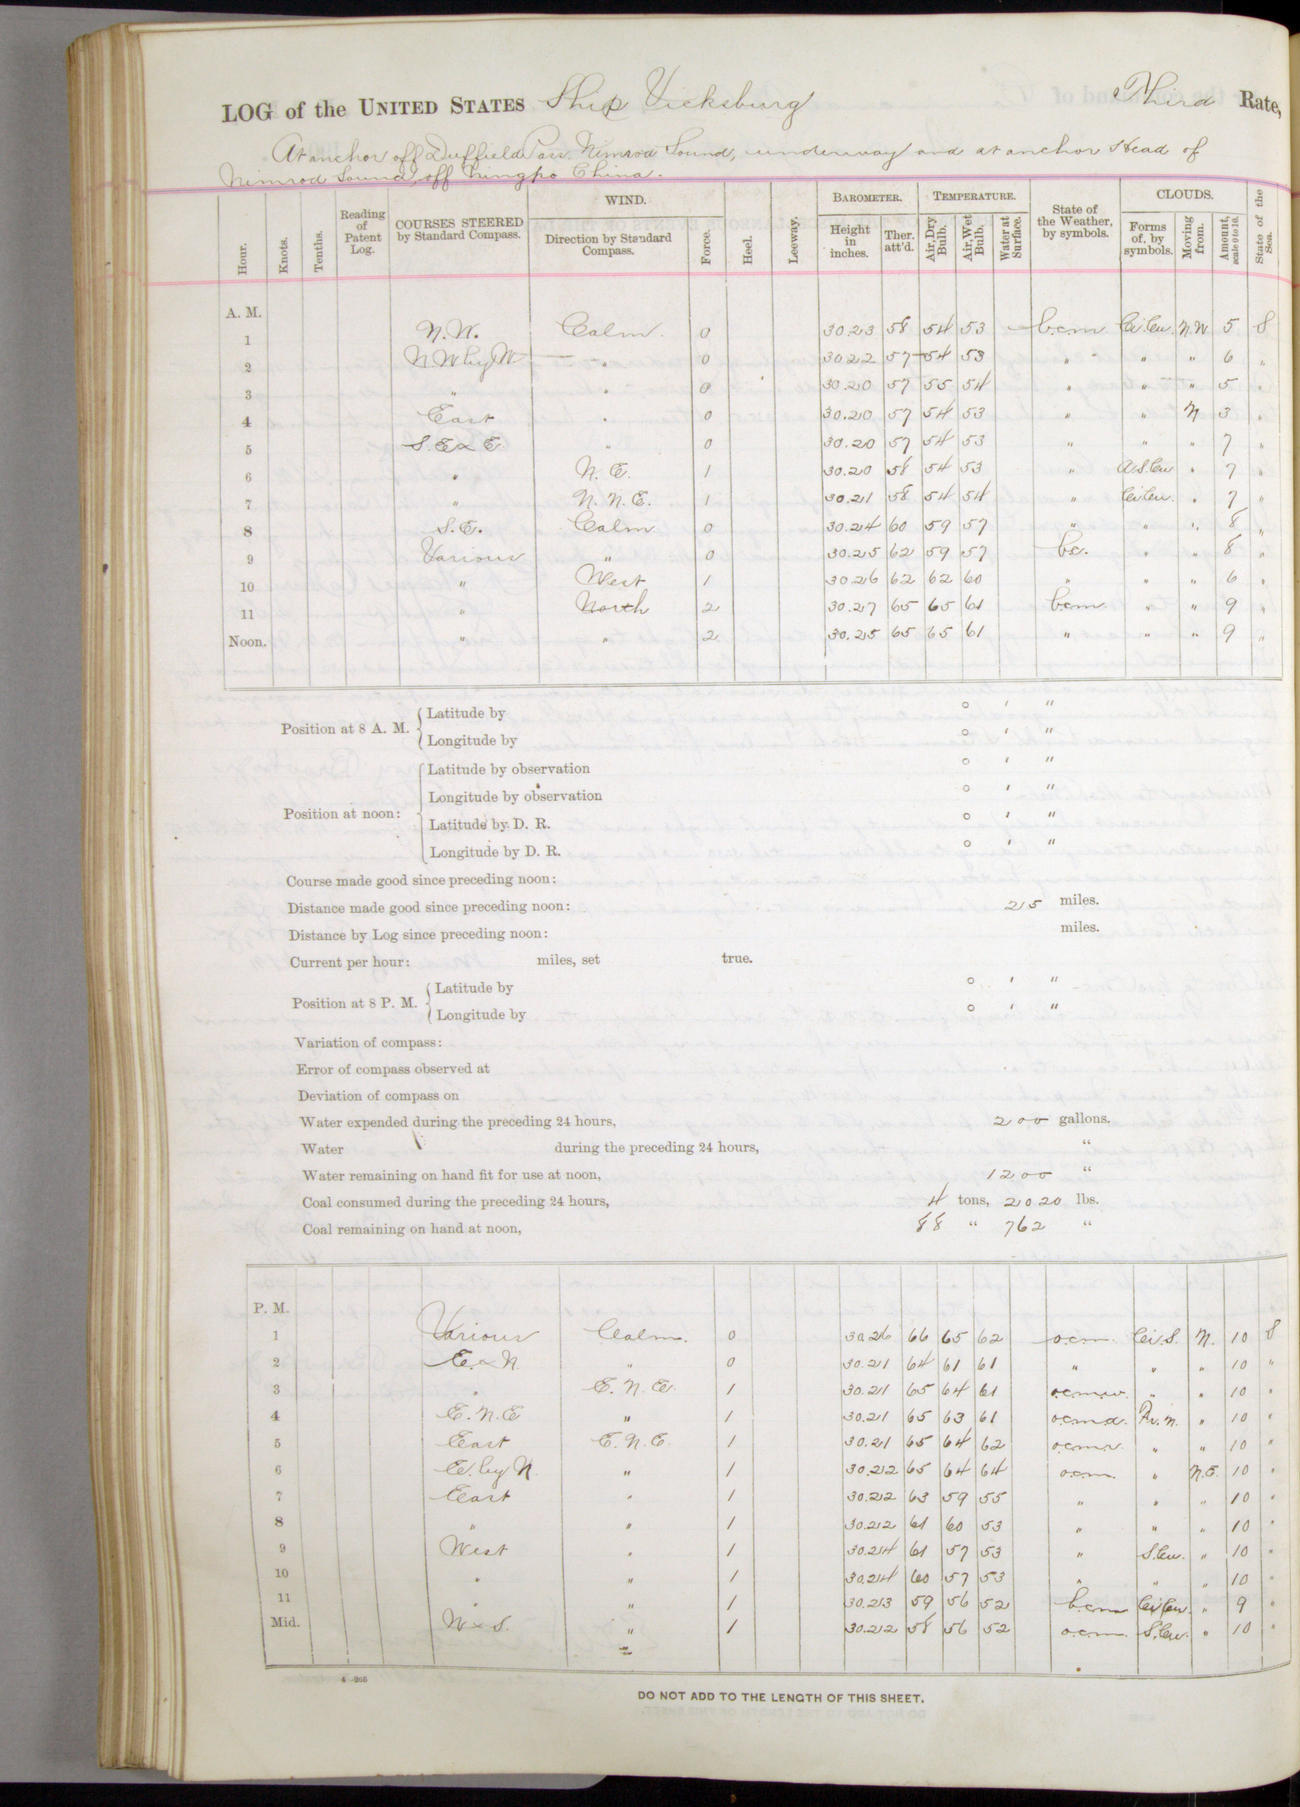 LOG of the UNITED STATES Ship Vicksburg Third Rate,
At anchor off Duffield Pass Nimrod Sound, underway and at anchor Head of
Nimrod Sound, off Ningpo China.
Hour. Knots. Tenths. Reading of Patent Log. COURSES STEERED by Standard Compass. WIND. Direction by Standard Compass. Force. Heel. Leeway. BAROMETER. Height in inches. Ther. att'd. TEMPERATURE. Air, Dry Bulb. Air, Wet Bulb. Water at Surface. State of the Weather, by symbols. CLOUDS. Forms of, by symbols. Moving from. Amount, scale 0 to 10. State of the Sea.
A. M.
1 N.W. Calm 0 30.23 58 54 53 b.c.m. Ci.Cu. N.W 5 S
2 N W by W " 0 30.22 57 54 53 " " " 6 "
3 " " 0 30.20 57 55 54 " " " 5 "
4 East " 0 30.20 57 54 53 " " N 3 "
5 S.E x E " 0 30.20 57 54 53 " " " 7 "
6 " N. E. 1 30.20 58 54 53 " A.S.Cu " 7 "
7 " N. N. E. 1 30.21 58 54 54 " Ci.Cu. " 7 "
8 S.E. Calm 0 30.24 60 59 57 " " " 8 "
9 Various " 0 30.25 62 59 57 bc. " " 8 "
10 " West 1 30.26 62 62 60 " " " 6 "
11 " North 2 30.27 65 65 61 bcm " " 9 "
Noon. " " 2 30.25 65 65 61 " " " 9 "
Position at 8 A. M. { Latitude by ° ' "
Longitude by ° ' "
Position at noon: { Latitude by observation ° ' "
Longitude by observation ° ' "
Latitude by D. R. ° ' "
Longitude by D. R. ° ' "
Course made good since preceding noon:
Distance made good since preceding noon: 25 miles.
Distance by Log since preceding noon: miles.
Current per hour: miles, set true.
Position at 8 P. M. { Latitude by ° ' "
Longitude by ° ' "
Variation of compass:
Error of compass observed at
Deviation of compass on
Water expended during the preceding 24 hours, 200 gallons.
Water during the preceding 24 hours, "
Water remaining on hand fit for use at noon, 1200 "
Coal consumed during the preceding 24 hours, 4 tons, 2020 lbs.
Coal remaining on hand at noon, 88 " 762 "
P. M.
1 Various Calm. 0 30.26 66 65 62 o.c.m. Ci.S. N. 10 S
2 E. x N " 0 30.21 64 61 61 " " " 10 "
3 " E. N. E. 1 30.21 65 64 61 " " 10 "
4 E. N. E " 1 30.21 65 63 61 o.c.m.d. " 10 "
5 East E. N. E. 1 30.21 65 64 62 " " 10 "
6 E. by N. " 1 30.22 65 64 64 o.c.m. " N.E. 10 "
7 East " 1 30.22 63 59 55 " " " 10 "
8 " " 1 30.22 61 60 53 " " " 10 "
9 West " 1 30.24 61 57 53 " S.Cu. " 10 "
10 " " 1 30.24 60 57 53 " " " 10 "
11 " " 1 30.23 59 56 52 b.c.m Ci.Cu. " 9 "
Mid. W x S. " 1 30.22 58 56 52 o.c.m. S.Cu. " 10 "
4—205
DO NOT ADD TO THE LENGTH OF THIS SHEET.